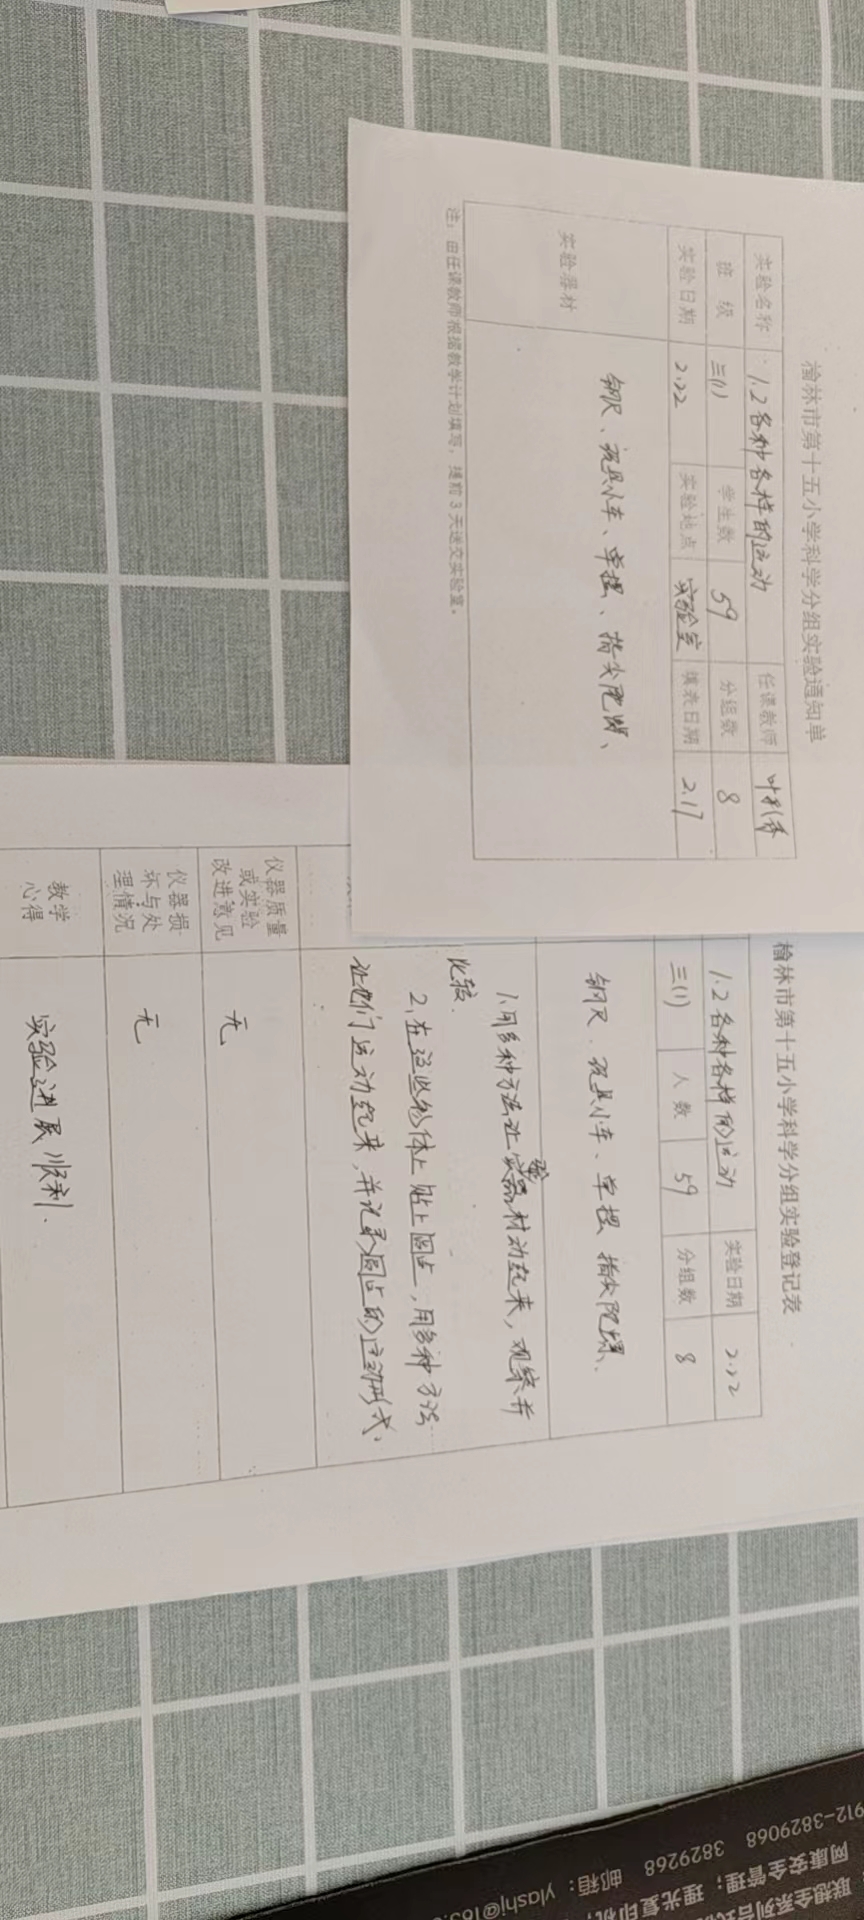 榆林市第十五小学科学分组实验通知单
实验名称 1.2各种各样的运动 任课教师
班 级 三(1) 学生数 59 分组数 8
实验日期 2.22 实验地点 实验室 填表日期 2.17
实验器材 钢尺、玩具小车、单摆、指尖陀螺、
注：由任课教师根据教学计划填写，提前3天送交实验室。
榆林市第十五小学科学分组实验登记表
1.2各种各样的运动 实验日期 2.22
三(1) 人数 59 分组数 8
钢尺、玩具小车、单摆、指尖陀螺、
1.用多种方法让实验器材动起来，观察并
比较.
2.在这些物体上贴上圆点，用多种方法
让他们运动起来，并记录圆点的运动形式、
仪器质量
或实验
改进意见 无
仪器损
坏与处
理情况 无
教学
心得 实验进展顺利.
912-3829068 3829268 邮箱：ylashj@163.
网康安全管理；理光复印机
联想全系列台式